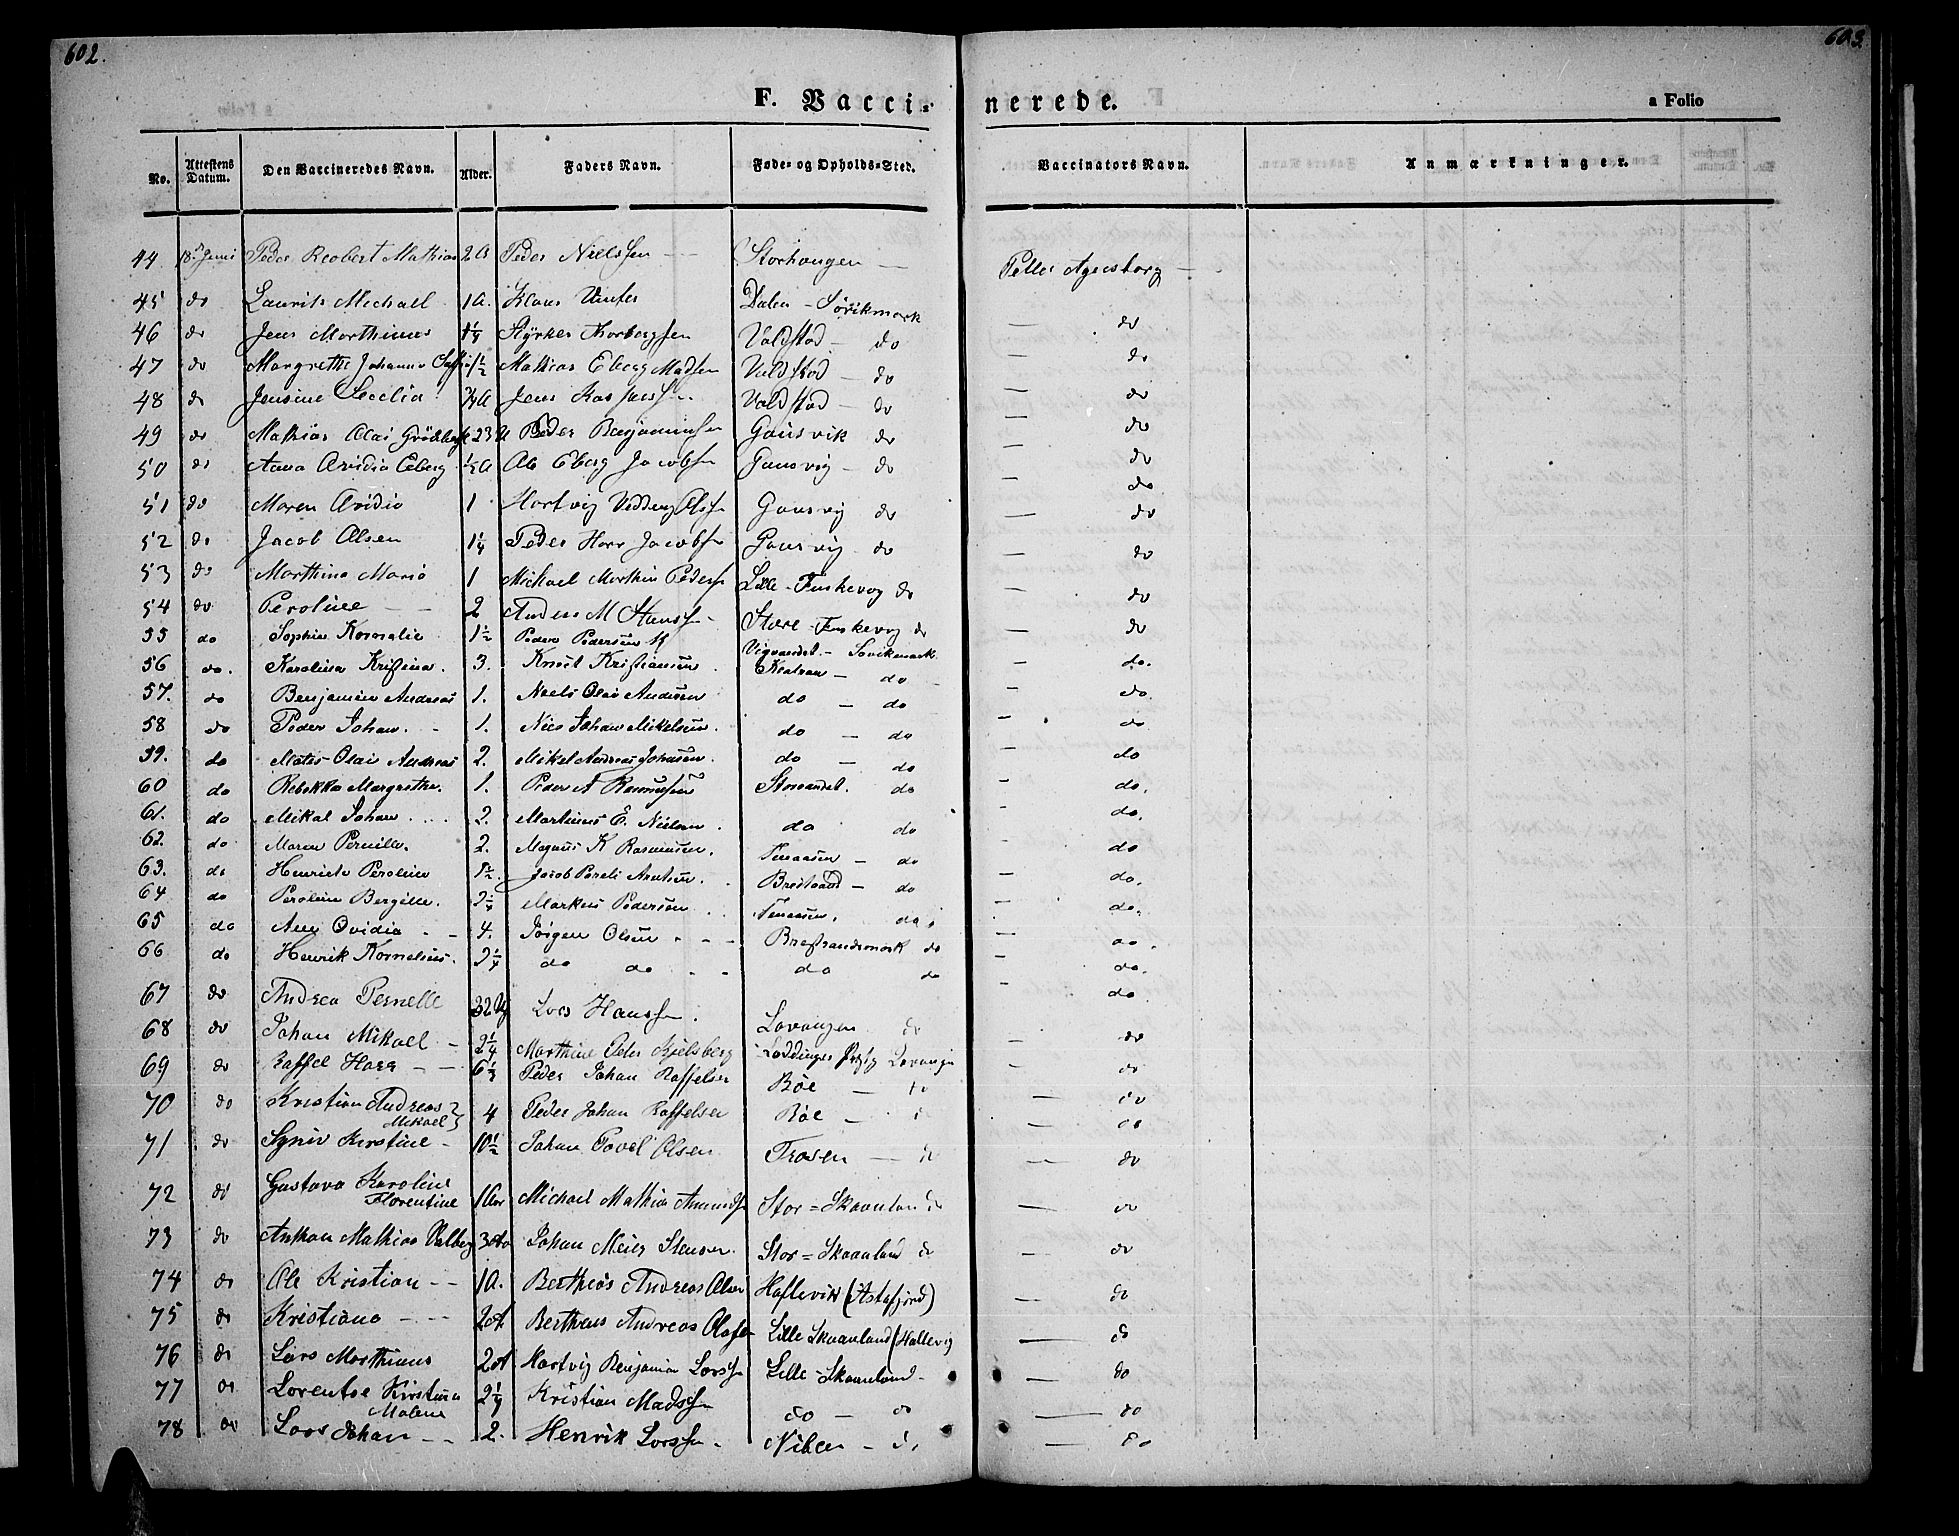 602.
603.
F. Vacci-
nerede.
a Folio
No.
Attestens Datum.
Den Vaccineredes Navn.
Alder.
Faders Navn.
Føde- og Opholds-Sted.
Vaccinators Navn.
Anmærkninger.
44 18 Juni Peder Robert Mathias 2 A Peder Nielssen Storhaugen — Peller Ageisborg —
45 do Laurits Michael 1 A. Klaus Dalen - Sørikmark — do
46 do Jens Morthinus 1¼ Styrker Thorbergsen Voldstad — do — do
47 do Margrethe Johanna 1½ Mathias Eberg Madsen Voldstad — do — do
48 do Jensine Secelia ¾ A Jens Voldstad — do — do
49 do Mathias Olai 23 Peder Benjaminsen Gausvik do — do
50 do Anna Ovidia Eberg ½ A Ole Eberg Jacobsen Gausvig — do — do
51 do Maren Ovidia 1 Hartvig Olsen Gausvig do — do
52 do Jacob Olsen 1¼ Peder Jacobsen Gausvig — do — do
53 do Marthina Maria 1 Michael Morthin Pedersen Lille-Finskevog do — do
54 do Peroline — — 2 Anders M Store-Finskevog do — do
55 do Sophia Kornelie 1½ Peder Pedersen K Vigvandet - Sovikmark — do.
56 do. Karolina Kristina. 3. Knut Kristiansen — do — do.
57. do Benjamin Andreas 1. Niels Olai Andersen do — do — do
58 do Peder Johan. - 1. Nils Johan Mikelsen. do — do — do
59. do Mates Olai Andreas 2. Mikel Andreas Johansen. do — do — do.
60 do Rebekka Margrethe. 1. Peder A Rasmussen Storvandet. do — do.
61. do Mikal Johan. . . . 2. Martinus E. Nielsen. do do — do
62. do Maren Pernille. 2. Magnus K Rasmussen. Tenaasen — do — do.
63. do Henriete Peroline 1½. Jacob Pareli Arntsen. Brestrand — do — do.
64 do Peroline Bergitte. 2¼ Markus Pedersen Tenaasen. do — do.
65 do Ane Ovidia - - 4. Jørgen Olsen - - - Brestrandsmark do — do.
66 do Henrik Kornelius. 2¼ do do - - do do — do.
67 do Andrea Pernelle 32 Lars Hanssen. Lavangen do — do
68 do Johan Mikael — 2¼ Marthin Peder Kjelsberg Loddinges Lavangen — do
69 do Raffel — — 6½ Peder Johan Raffelsen Böe — do — do
70 do Kristian Andreas Mikael} 4 Peder Johan Raffelsen Böe — do — do
71 do Kirstine - 10½ Johan Povel Olsen Trasen — do — do
72 do Gustava Karoline Florentine 1 Aar Michael Mathias Amundsen Stor=Skaanland do — do
73 do Anthon Mathias Valberg 3 Aar Johan Meier Stensen. Stor=Skaanland do — do
74 do Ole Kristian - - 1 A. Bertheus Andreas Olsen (Astafjord) — do
75 do Kristiana - - - 2 A Bertheus Andreas Olafsen Lille Skaanland — do
76 do Lars Morthinus 2 A Hartvig Benjamin Larssen Lille-Skaanland- — do
77 do Lorentse Kirstina Malene 2¼ Kristian Madssen do — do — do
78 do Lars Johan - - 2. Henrik Larssen - — do — do